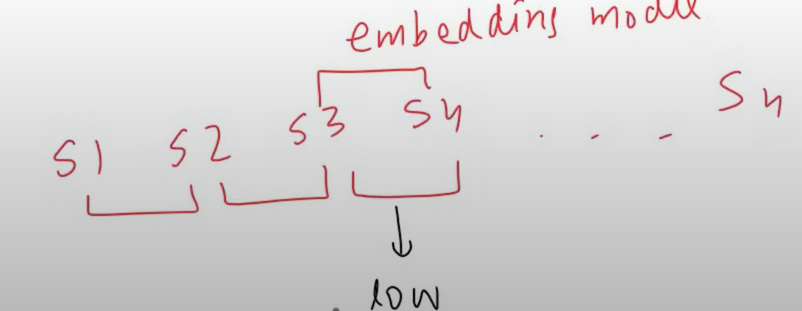 embedding model
S1 S2 S3 S4 . . . Sn
low